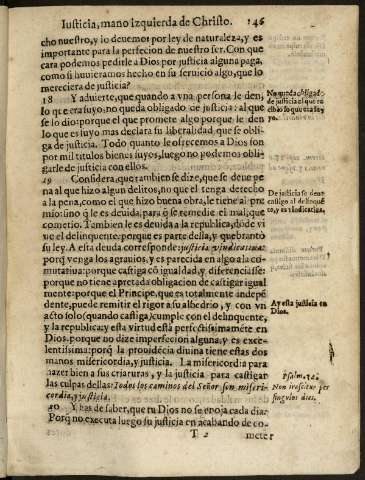 Iusticia, mano izquierda de Christo. 146
cho nuestro, y lo deuemos por ley de naturaleza, y es
importante para la perfecion de nuestro ser. Con que
cara podemos pedirle a Dios por justicia alguna paga,
como si huuieramos hecho en su seruicio algo, que lo
mereciera de justicia?
18 Y aduierte, que quando a vna persona le den,
lo que era suyo, no queda obligado de justicia: al que
se lo dio: porque el que promete algo porque le den
lo que es suyo mas declara su liberalidad, que se obli-
ga de justicia. Todo quanto le ofrecemos a Dios son
por mil titulos bienes suyos, luego no podemos obli-
garle de justicia con ellos.
No queda obligado
de justicia al que re
cibio lo que era suyo
yo.
19 Considera, que tambien se dize, que se deue pe
na al que hizo algun delito, no que el tenga derecho
a la pena, como el que hizo buena obra, le tiene al pre
mio: sino q̃ le es deuida, para q̃ se remedie el mal, que
cometio. Tambien le es deuida a la republica, dõde vi
ue el delinquente: porque es parte della, y quebrantò
su ley. A esta deuda corresponde: justicia vindicatiua:
porq̃ venga los agrauios, y es parecida en algo a la co-
mutatiua: porque castiga cõ igualdad, y diferenciasse:
porque no tiene apretada obligacion de castigar igual
mente: porque el Principe, que es totalmente indepẽ
dente, puede remitir el rigor a su albedrio, y con vn
acto solo (quando castiga) cumple con el delinquente,
y la republica: y esta virtud està perfectissimamẽte en
Dios: porque no dize imperfecion alguna, y es exce-
lentissima: porq̃ la prouidẽcia diuina tiene estas dos
manos misericordia, y justicia. La misericordia para
hazer bien a sus criaturas, y la justicia para castigar
las culpas dellas: Todos los caminos del Señor son miseri-
cordia, y justicia.
De justicia se deue
castigo al delinquẽ
te, y es vindicatiua.
Ay esta justicia en
Dios.
20 Y has de saber, que tu Dios no se enoja cada dia:
Porq̃ no executa luego su justicia en acabando de co-
Psalm. 7.
Non irascitur per
singulos dies.
T 2 meter